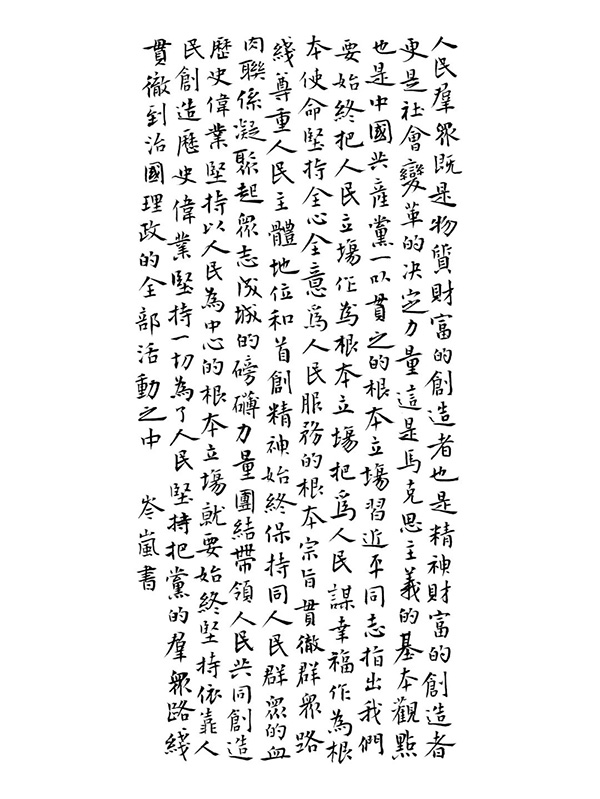 人民羣眾既是物質財富的創造者也是精神財富的創造者
更是社會變革的决定力量這是馬克思主義的基本觀點
也是中國共產黨一以貫之的根本立場習近平同志指出我們
要始終把人民立場作為根本立場把爲人民謀幸福作為根
本使命堅持全心全意爲人民服務的根本宗旨貫徹群眾路
綫尊重人民主體地位和首創精神始終保持同人民群眾的血
肉聯係凝聚起眾志成城的磅礴力量團結帶領人民共同創造
歷史偉業堅持以人民為中心的根本立場就要始終堅持依靠人
民創造歷史偉業堅持一切為了人民堅持把黨的羣眾路綫
貫徹到治國理政的全部活動之中 岑嵐書